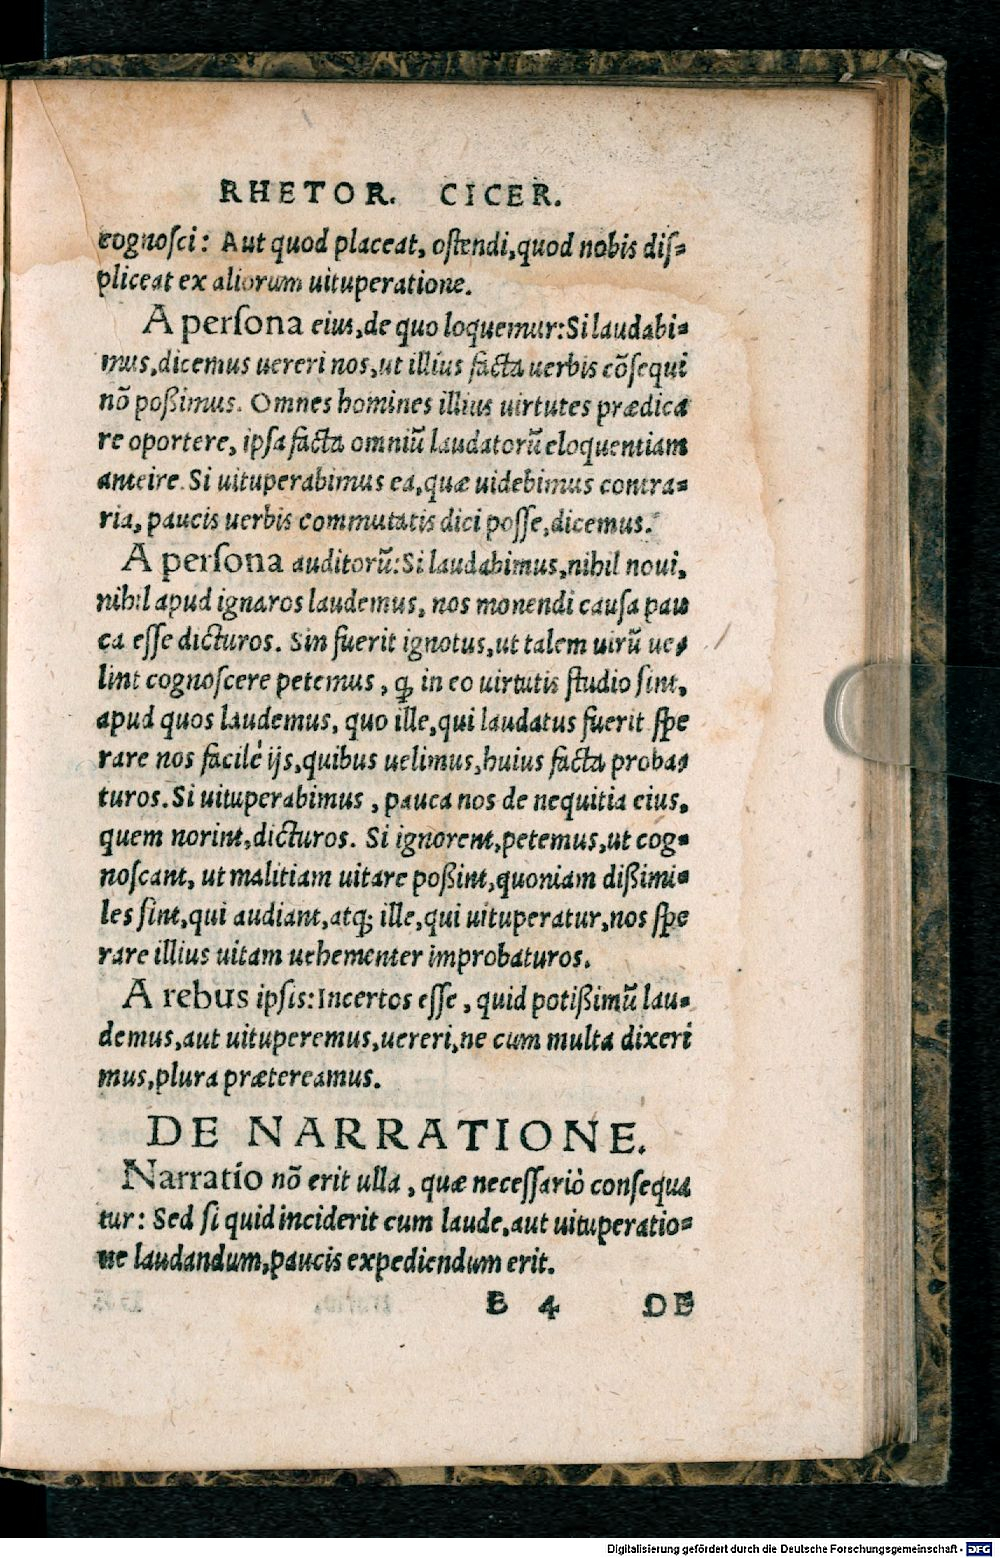 RHETOR. CICER.
cognoſci: Aut quod placeat, oſtendi,quod nobis diſ-
pliceat ex aliorum uituperatione.
A perſona eius,de quo loquemur:Si laudabi-
mus,dicemus uereri nos,ut illius facta uerbis cõſequi
nõ poßimus. Omnes homines illius uirtutes prædica
re oportere, ipſa facta omniũ laudatorũ eloquentiam
anteire. Si uituperabimus ea,quæ uidebimus contra-
ria, paucis uerbis commutatis dici poſſe,dicemus.
A perſona auditorũ:Si laudabimus,nihil noui,
nihil apud ignaros laudemus, nos monendi cauſa pau
ca eſſe dicturos. Sin fuerit ignotus,ut talem uirũ ue-
lint cognoſcere petemus, ꝙ in eo uirtutis ſtudio ſint,
apud quos laudemus, quo ille,qui laudatus fuerit ſpe
rare nos facilè ijs,quibus uelimus,huius facta proba-
turos. Si uituperabimus, pauca nos de nequitia eius,
quem norint,dicturos. Si ignorent,petemus,ut cog-
noſcant, ut malitiam uitare poßint,quoniam dißimi-
les ſint,qui audiant,atq; ille,qui uituperatur,nos ſpe
rare illius uitam uehementer improbaturos.
A rebus ipſis:Incertos eſſe, quid potißimũ lau-
demus,aut uituperemus,uereri,ne cum multa dixeri
mus,plura prætereamus.
DE NARRATIONE.
Narratio nõ erit ulla, quæ neceſſariò conſequa
tur: Sed ſi quid inciderit cum laude,aut uituperatio-
ne laudandum,paucis expediendum erit.
B 4 DE
Digitalisierung gefördert durch die Deutsche Forschungsgemeinschaft - DFG